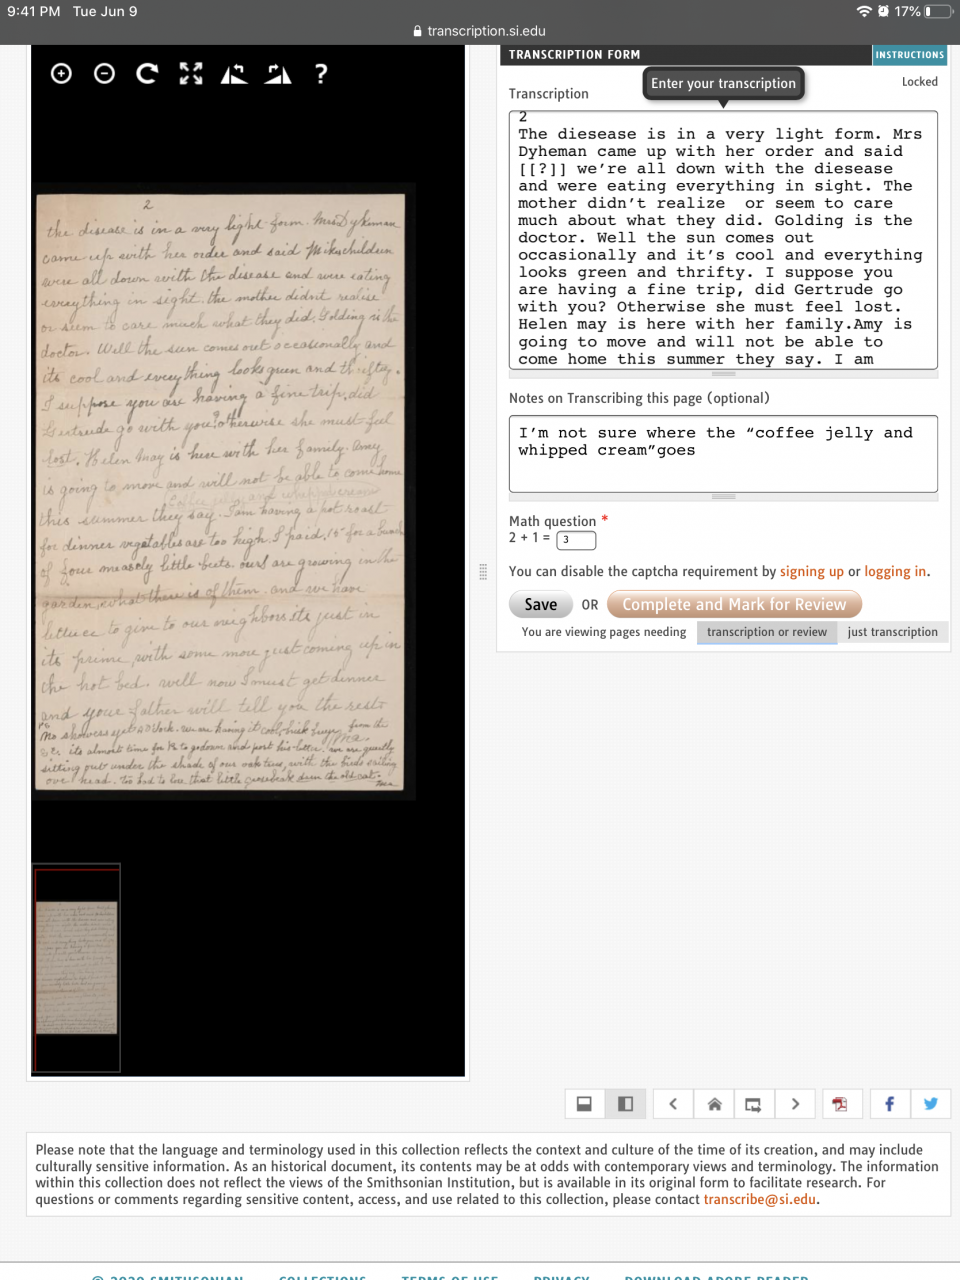 9:41 PM Tue Jun 9
17%
transcription.si.edu
2
the disease is in a very light form. Mrs Dykeman
came up with her order and said Mikes children
were all down with the disease and were eating
everything in sight. the mother didnt realise
or seem to care much what they did. Golding is the
doctor. Well the sun comes out occasionally and
its cool and everything looks green and thrifty.
I suppose you are having a fine trip, did
Gertrude go with you? otherwise she must feel
lost. Helen May is here with her family. Amy
is going to move and will not be able to come home
Coffee jelly and whipped cream
this summer they say. I am having a pot roast
for dinner vegetables are too high. I paid 15 for a bunch
of four measly little beets. ours are growing in the
garden, what there is of them. and we have
lettuce to give to our neighbors its just in
its prime with some more just coming up in
the hot bed. well now I must get dinner
and your father will tell you the rest
Ma.
No showers yet at York. we are having it cool, brisk from the
its almost time for to go down and post his letter. we are quietly
sitting out under the shade of our oak tree, with the birds sailing
over head. too bad to lose that little grosbeak the old cat.
Ma
TRANSCRIPTION FORM
INSTRUCTIONS
Enter your transcription
Locked
Transcription
2
The diesease is in a very light form. Mrs
Dyheman came up with her order and said
[[?]] we’re all down with the diesease
and were eating everything in sight. The
mother didn’t realize or seem to care
much about what they did. Golding is the
doctor. Well the sun comes out
occasionally and it’s cool and everything
looks green and thrifty. I suppose you
are having a fine trip, did Gertrude go
with you? Otherwise she must feel lost.
Helen may is here with her family.Amy is
going to move and will not be able to
come home this summer they say. I am
Notes on Transcribing this page (optional)
I’m not sure where the “coffee jelly and
whipped cream”goes
Math question *
2 + 1 = 3
You can disable the captcha requirement by signing up or logging in.
Save OR Complete and Mark for Review
You are viewing pages needing transcription or review just transcription
Please note that the language and terminology used in this collection reflects the context and culture of the time of its creation, and may include
culturally sensitive information. As an historical document, its contents may be at odds with contemporary views and terminology. The information
within this collection does not reflect the views of the Smithsonian Institution, but is available in its original form to facilitate research. For
questions or comments regarding sensitive content, access, and use related to this collection, please contact transcribe@si.edu.
© 2020 SMITHSONIAN COLLECTIONS TERMS OF USE PRIVACY DOWNLOAD ADOBE READER